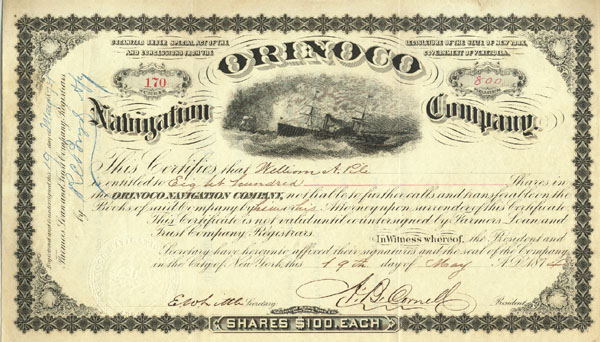 ORGANIZED UNDER SPECIAL ACT OF THE LEGISLATURE OF THE STATE OF NEW YORK,
AND CONCESSIONS FROM THE GOVERNMENT OF VENEZUELA.
ORINOCO
170 800
SHARES
Navigation Company.
This Certifies that William A.
is entitled to Eight Hundred Shares in
the ORINOCO NAVIGATION COMPANY, no liability for further calls and transferable on the
Books of said Company by Attorney upon surrender of this Certificate
This Certificate is not valid until countersigned by Farmers Loan and
Trust Company, Registrars.
In Witness whereof, the President and
Secretary have hereunto affixed their signatures and the seal of the Company
in the City of New York, this 19th day of May A.D. 1874
Secretary. A. B. Cornell President.
SHARES $100. EACH
Farmers Loan and Trust Company, Registrars
by